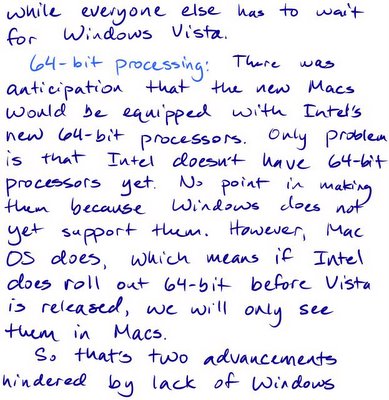 while everyone else has to wait
for Windows Vista.
64-bit processing: There was
anticipation that the new Macs
would be equipped with Intel's
new 64-bit processors. Only problem
is that Intel doesn't have 64-bit
processors yet. No point in making
them because Windows does not
yet support them. However, Mac
OS does, which means if Intel
does roll out 64-bit before Vista
is released, we will only see
them in Macs.
So that's two advancements
hindered by lack of Windows